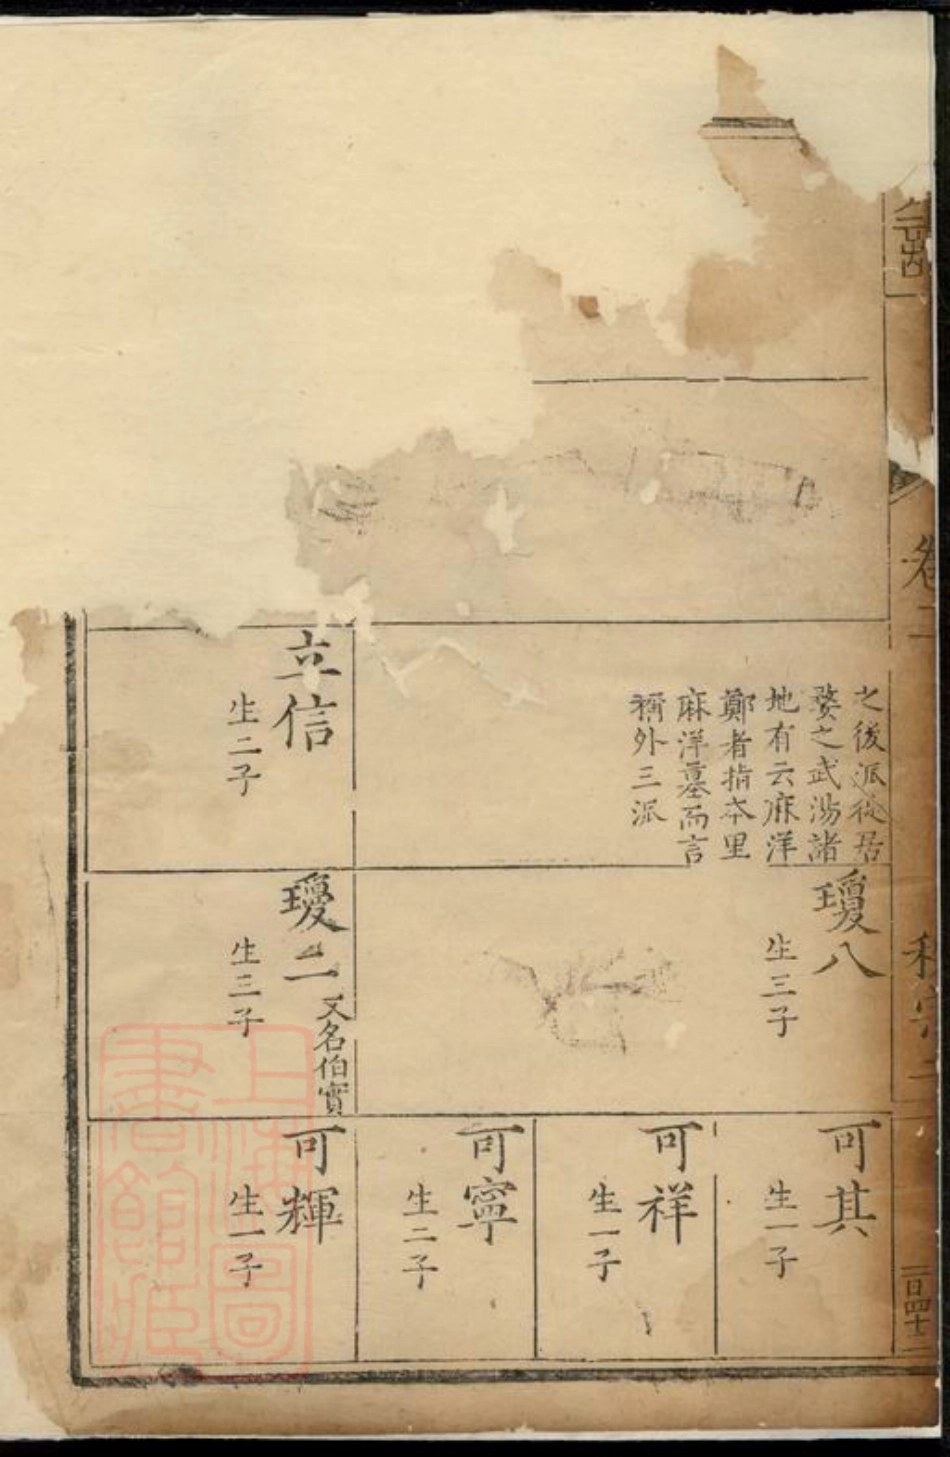 卷二
之後派從居
婺之武湯諸
地有云麻洋
鄭者指本里
麻洋墓而言
稱外三派
立信
生二子
瓊八
生三子
瓊二
又名伯實
生三子
可其
生一子
可祥
生一子
可寧
生二子
可輝
生一子
上海圖
書館藏